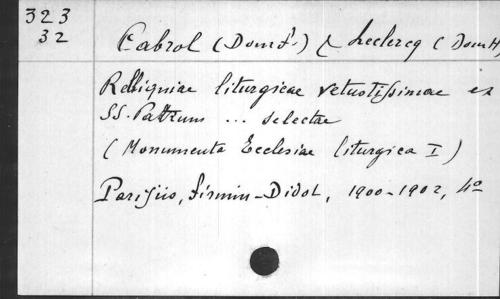 323
32
Cabrol (Dom F.) & Leclercq (Dom H
Relliquiae liturgicae vetustissimae ex
SS. Patrum ... selectae
(Monumenta Ecclesiae liturgica I)
Parisiis, Firmin-Didot, 1900-1902, 4º